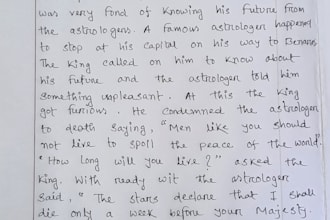 was very fond of knowing his future from
the astrologers. A famous astrologer happened
to stop at his capital on his way to Benaras
The King called on him to know about
his future and the astrologer told him
something unpleasant. At this the King
got furious. He condemned the astrologer
to death saying, "Men like you should
not live to spoil the peace of the world"
"How long will you live?" asked the
King. With ready wit the astrologer
said, "The stars declare that I shall
die only a week before your Majesty.